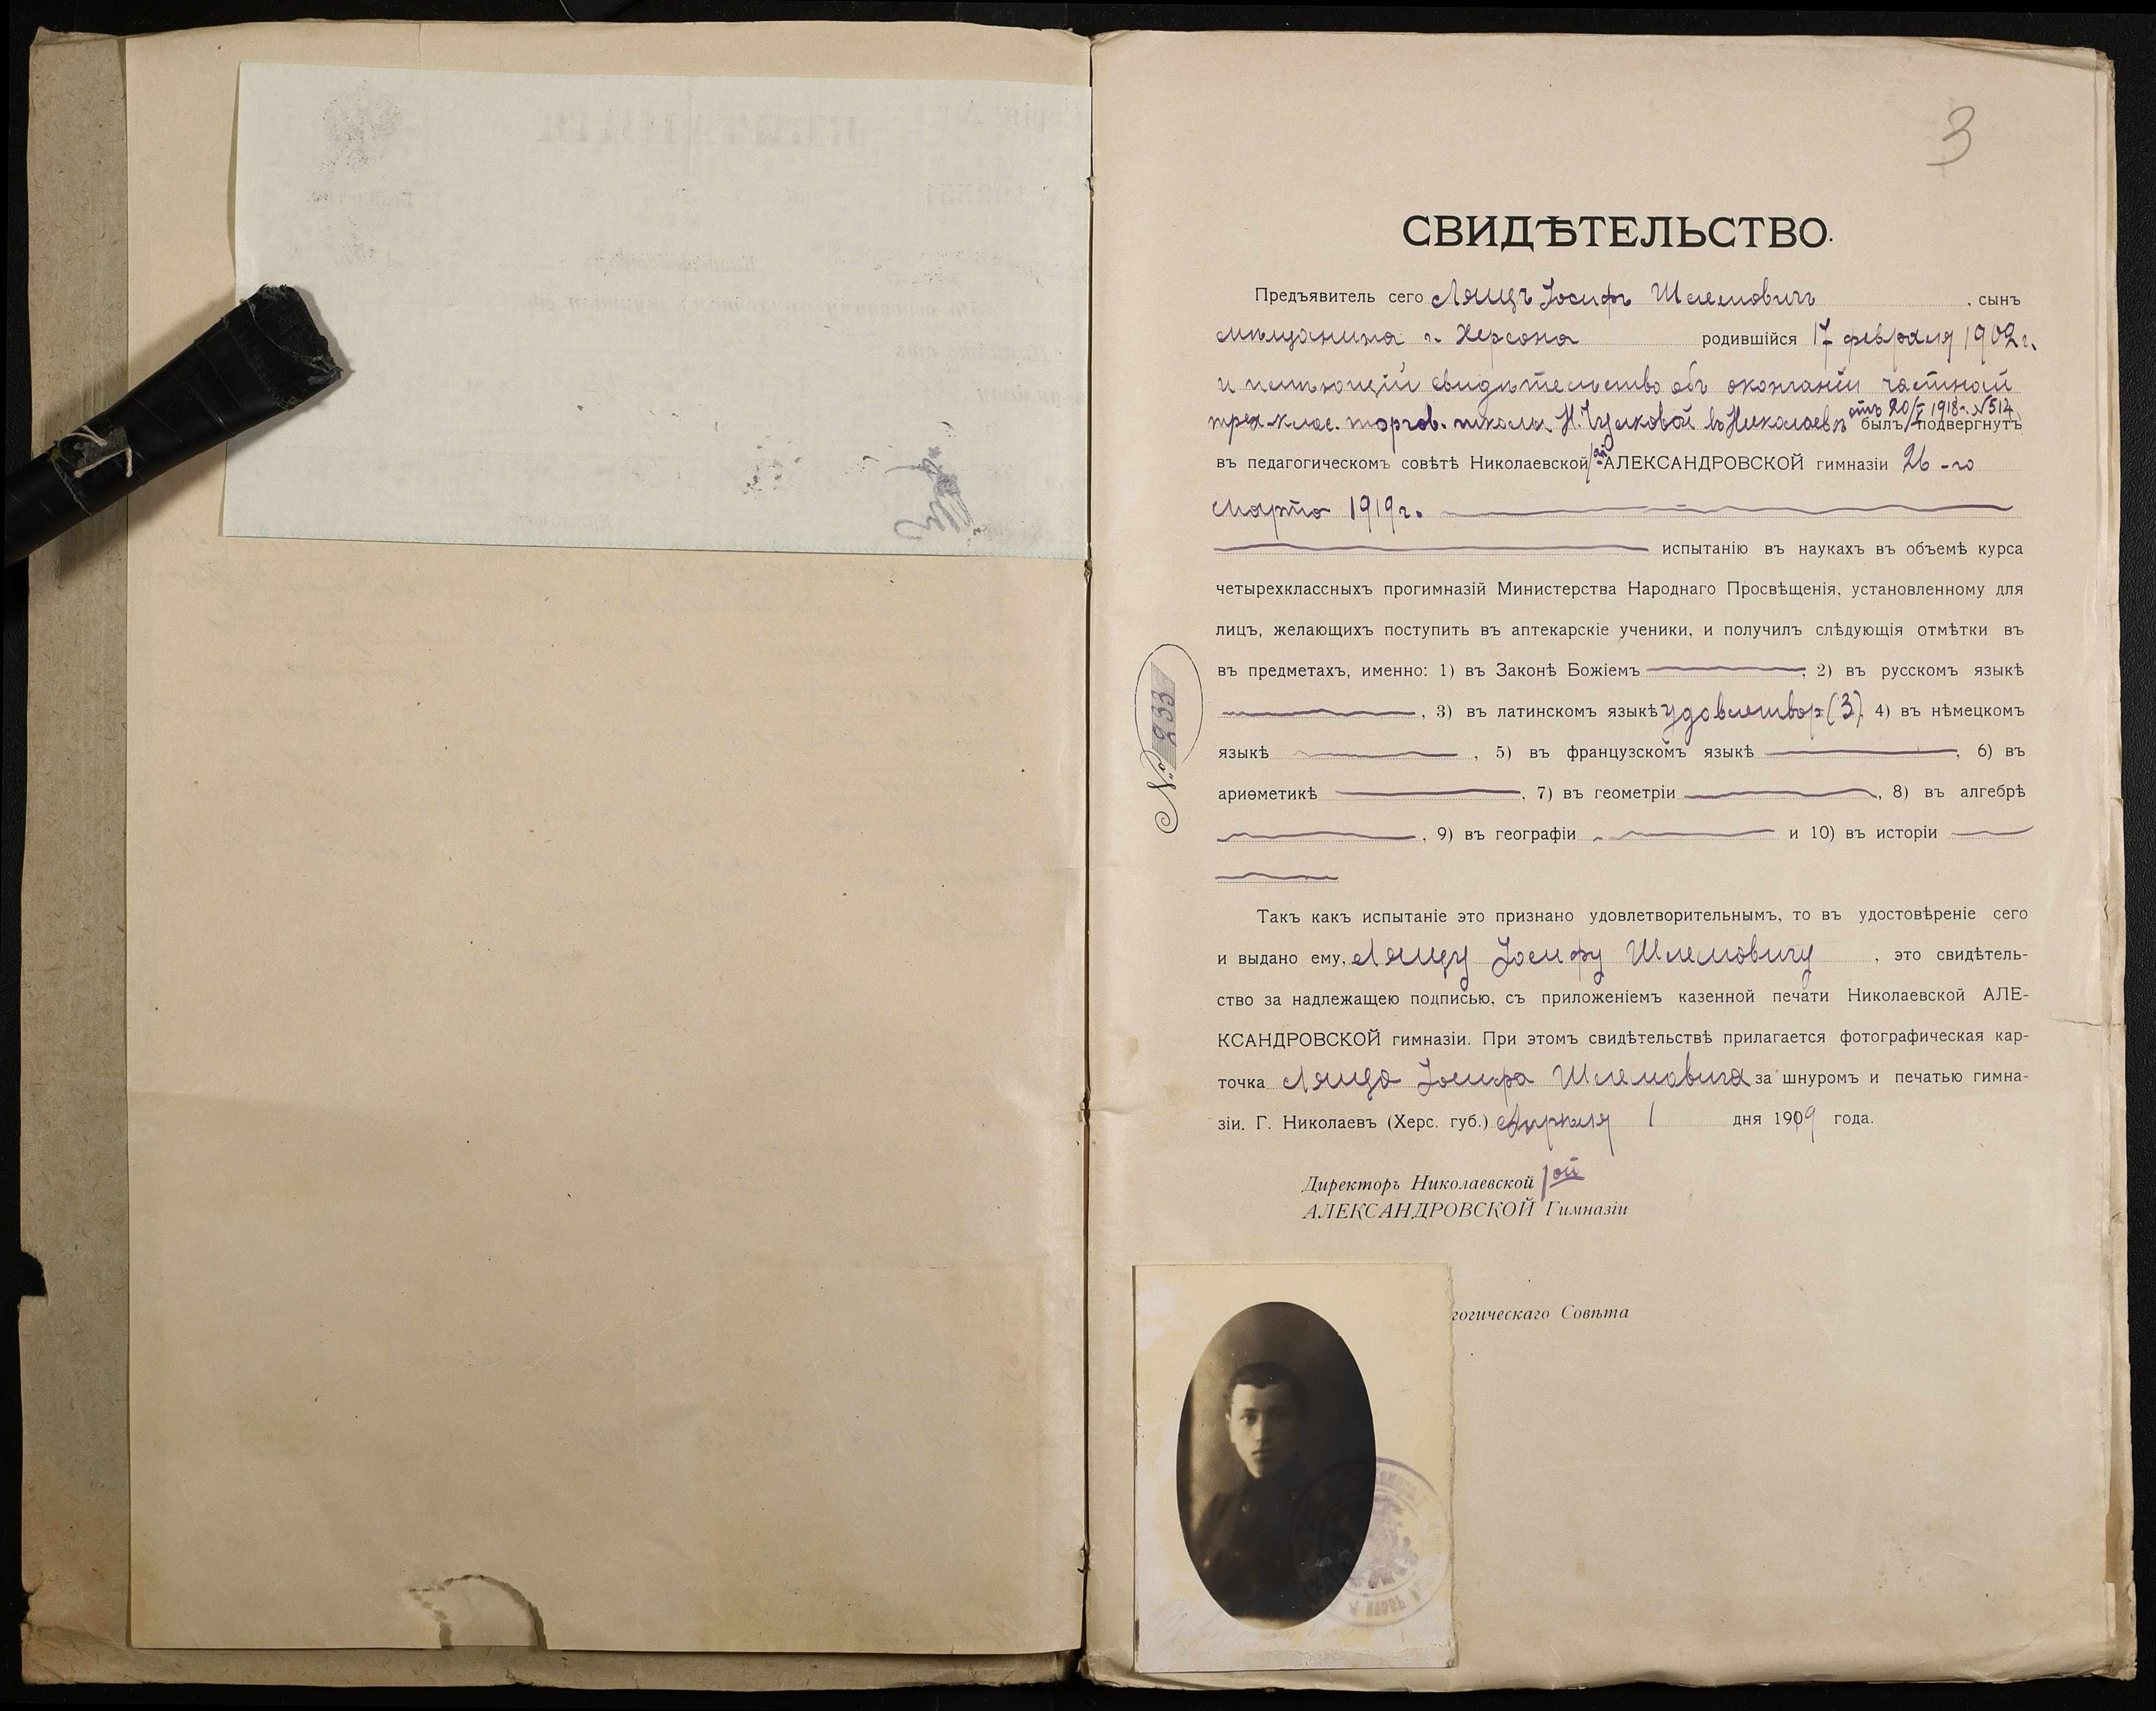 3
СВИДѢТЕЛЬСТВО.
Предъявитель сего Лящъ Іосифъ Шлемовичъ , сынъ
мѣщанина г. Херсона родившійся 17 февраля 1902 г.
и имѣющій свидѣтельство объ окончаніи частной
трех клас. торгов. школы Н. Чулковой въ Николаевѣ отъ 20/V 1918 г. № 514 былъ подвергнутъ
въ педагогическомъ совѣтѣ Николаевской 1-ой АЛЕКСАНДРОВСКОЙ гимназіи 26-го
марта 1919 г.
испытанію въ наукахъ въ объемѣ курса
четырехклассныхъ прогимназій Министерства Народнаго Просвѣщенія, установленному для
лицъ, желающихъ поступить въ аптекарскіе ученики, и получилъ слѣдующія отмѣтки въ
въ предметахъ, именно: 1) въ Законѣ Божіемъ , 2) въ русскомъ языкѣ
, 3) въ латинскомъ языкѣ удовлетвор. (3), 4) въ нѣмецкомъ
языкѣ , 5) въ французскомъ языкѣ , 6) въ
ариѳметикѣ , 7) въ геометріи , 8) въ алгебрѣ
, 9) въ географіи и 10) въ исторіи
№ 233
Такъ какъ испытаніе это признано удовлетворительнымъ, то въ удостовѣреніе сего
и выдано ему, Лящу Іосифу Шлемовичу , это свидѣтель-
ство за надлежащею подписью, съ приложеніемъ казенной печати Николаевской АЛЕ-
КСАНДРОВСКОЙ гимназіи. При этомъ свидѣтельствѣ прилагается фотографическая кар-
точка Ляща Іосифа Шлемовича за шнуромъ и печатью гимна-
зіи. Г. Николаевъ (Херс. губ.) Апрѣля 1 дня 1919 года.
Директоръ Николаевской 1ой
АЛЕКСАНДРОВСКОЙ Гимназіи
гогическаго Совѣта